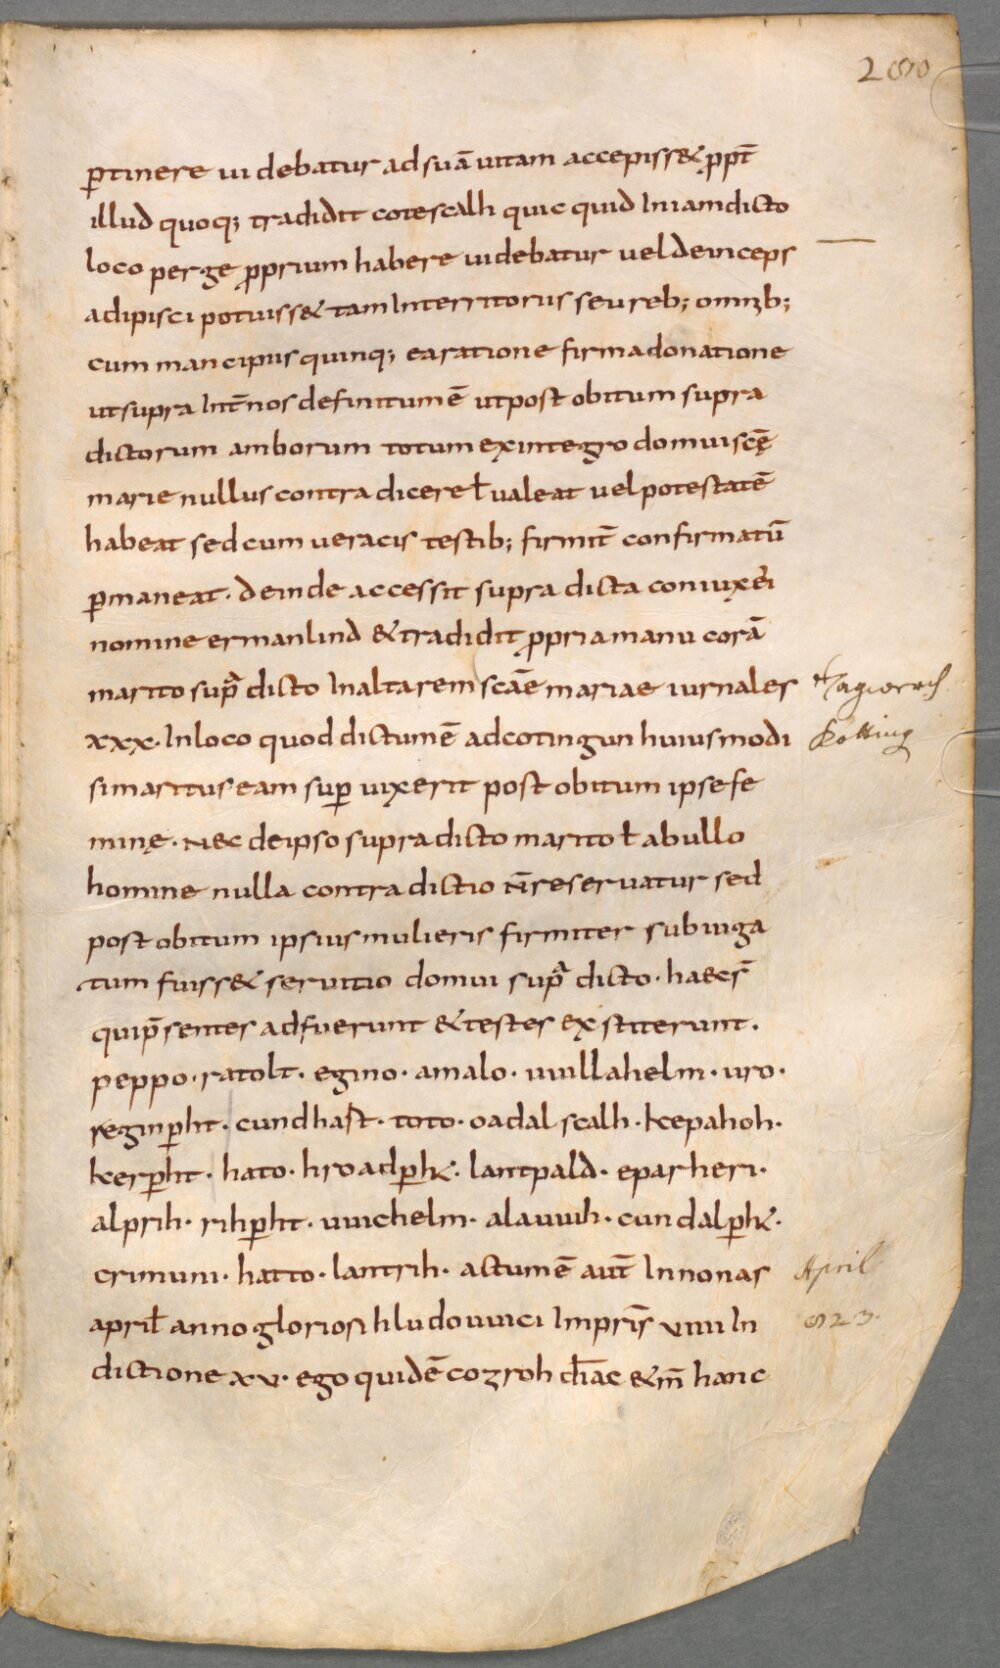 280
ꝑtinere uidebatur ad suā uitam accepiss& ꝓpt̄
illud quoq; tradidit cotescalh quicquid In iamdicto
loco perge ꝓprium habere uidebatur uel deinceps
adipisci potuiss& tam In territoriis seu reb; omnib;
cum mancipiis quinq; ea ratione firma donatione
ut supra Int̄ nos definitum ē ut post obitum supra
dictorum amborum totum ex integro domui scę̄
marie nullus contradicere ł ualeat uel potestatē
habeat sed cum ueracis testib; firmit̄ confirmatū
ꝑmaneat. deinde accessit supra dicta coniux ei
nomine ermanlind & tradidit ꝓpria manu corā
marito supͣ dicto In altarem scāe mariae iurnales
xxx. In loco quod dictum ē ad cotingun huiusmodi
si maritus eam suꝑ uixerit post obitum ipse fe
minę. nec de ipso supra dicto marito ł ab ullo
homine nulla contradictio n̄ reseruatur sed
post obitum ipsius mulieris firmiter subiuga
tum fuiss& seruitio domui supͣ dicto. haec s̄
qui p̄sentes adfuerunt & testes exstiterunt.
peppo. ratolt. egino. amalo. uuillahelm. uro.
reginꝑht. cundhast. toto. oadalscalh. kepahoh.
kerꝑht. hato. hroadꝑht. lantpald. eparheri.
alprih. rihꝑht. uuichelm. alauuih. cundalꝑht.
crimuni. hatto. lantrih. actum ē aut̄ In nonas
april anno gloriosi hludouuici Impris̄ viiii In
dictione xv. ego quidē cozroh diac̄ & m̄ hanc
Kötting
April
823.